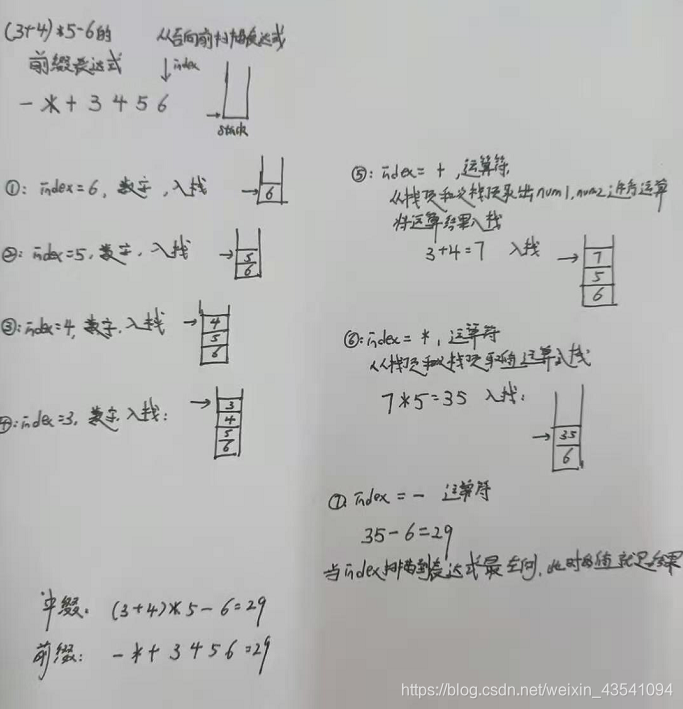 (3+4)*5-6的
前缀表达式
从右向前扫描表达式
index
- * + 3 4 5 6
stack
①: index=6, 数字, 入栈
6
②: index=5, 数字, 入栈
5
6
③: index=4, 数字, 入栈
4
5
6
④: index=3, 数字, 入栈:
3
4
5
6
⑤: index= +, 运算符
从栈顶和次栈顶取出num1, num2进行运算
将运算结果入栈
3+4=7 入栈
7
5
6
⑥: index= *, 运算符
从栈顶和次栈顶 运算入栈
7*5=35 入栈:
35
6
⑦. index = - 运算符
35-6=29
当index扫描到表达式最左侧, 此时的值就是结果
中缀: (3+4)*5-6=29
前缀: - * + 3 4 5 6 =29
https://blog.csdn.net/weixin_43541094